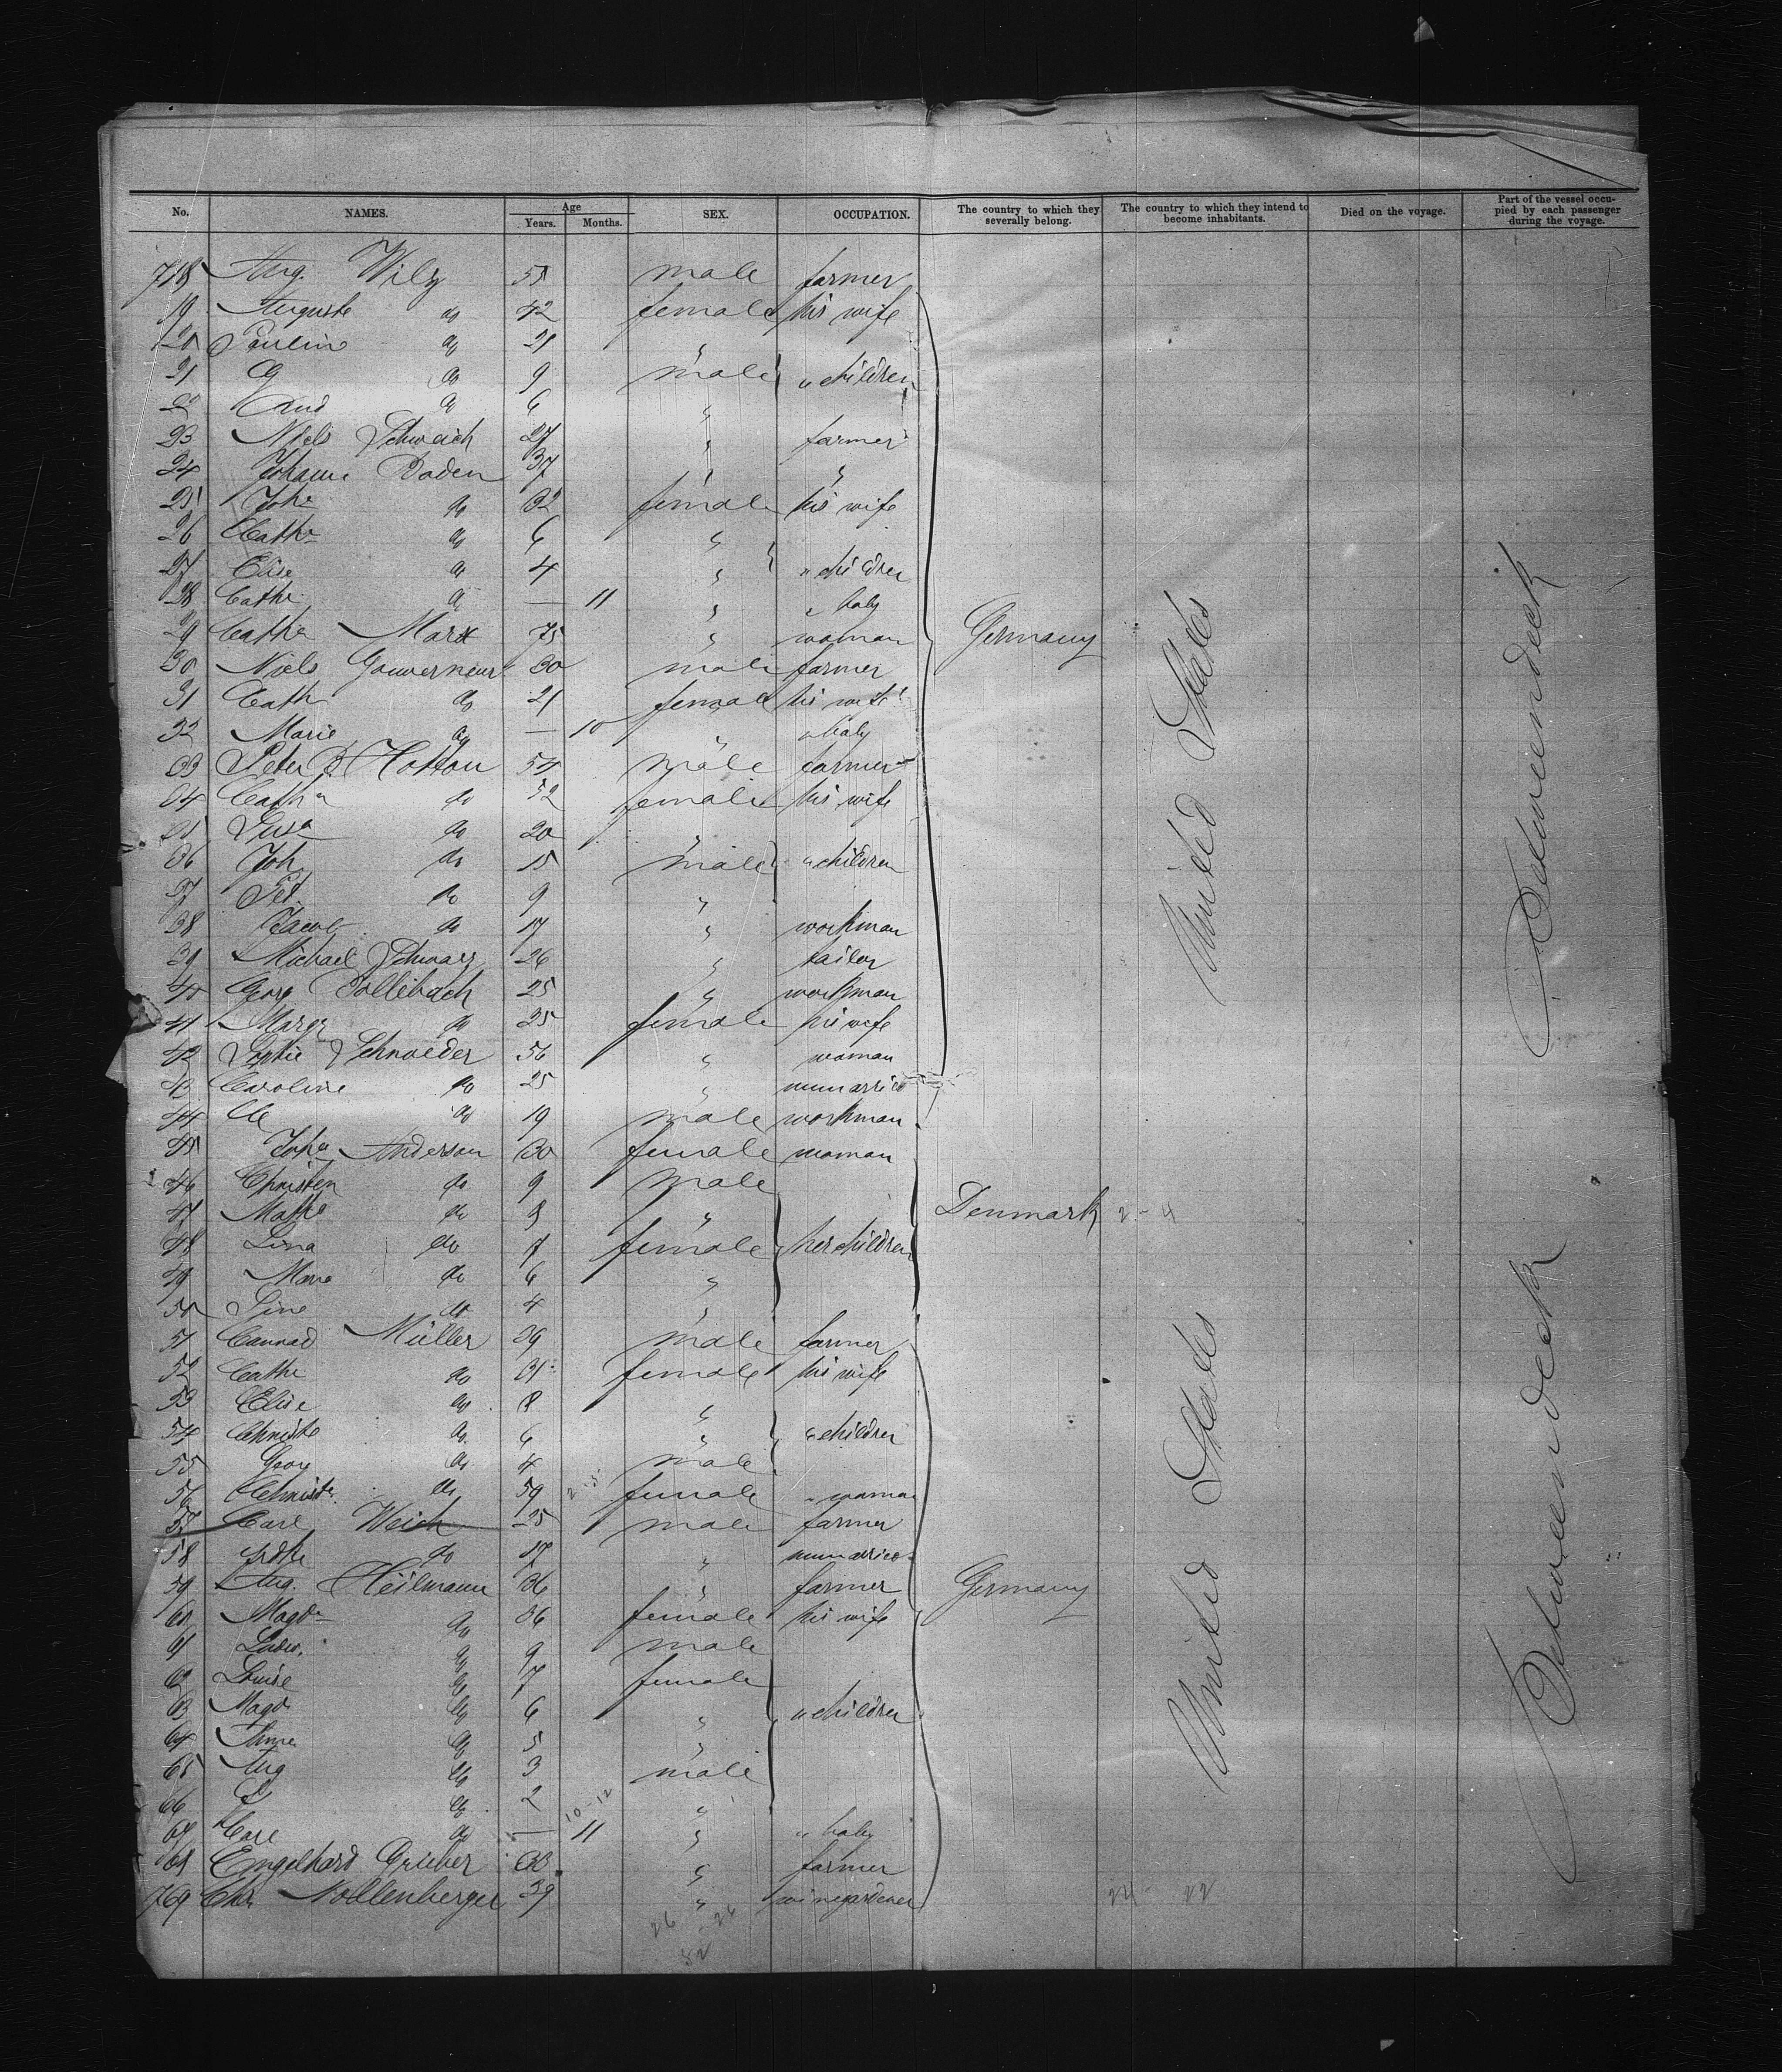 No. NAMES. Age Years. Months. SEX. OCCUPATION. The country to which they severally belong. The country to which they intend to become inhabitants. Died on the voyage. Part of the vessel occupied by each passenger during the voyage.
718 Aug. Wilz 55 male farmer
19 Auguste do 42 female his wife
20 Pauline do 21 "
21 G do 9 male " children
22 do 6 "
23 Niels Schwaich 27 " farmer
24 Johann Boden 37 " "
25 Joha do 32 female his wife
26 Catha do 6 "
27 Elise do 4 " " children
28 Cathe do — 11 " " baby
29 Catha Marx 75 " woman Germany
30 Niels Gouverneur 30 male farmer
31 Cath do 21 female his wife
32 Marie do — 10 " " baby
33 Peter Hottou 54 male farmer
34 Catha do 52 female his wife
35 Susa do 20 "
36 Joh do 15 male " children
37 Pet. do 9 "
38 Jacob do 17 " workman
39 Michael Schwarz 26 " tailor
40 Georg Bollibach 25 " workman
41 Margr do 25 female his wife
42 Sophie Schnoeder 56 " woman
43 Caroline do 25 " unmarried
44 do 19 male workman
45 Joha Anderson 30 female woman
46 Christen do 9 male
47 do 8 " Denmark 2-4
48 Lina do 7 female her children
49 Maria do 6 "
50 Sine do 4 "
51 Cunrad Müller 39 male farmer
52 Cathe do 31 female his wife
53 Elise do 8 "
54 Christe do 6 " " children
55 Georg do 4 male
56 Christe do 59 female " woman
57 Carl Weick 25 male farmer
58 do 17 " unmarried
59 Aug. Heilmann 36 " farmer Germany
60 Magda do 36 female his wife
61 Ludw. do 9 male
62 Louise do 7 female
63 Magd do 6 " " children
64 Anna do 5 "
65 Aug do 3 male
66 do 2 "
67 Carl do — 11 " " baby
68 Engelhard Grieber 33 " farmer
769 Chr. Nollenberger 39 " winegardener
United States
Betweendeck
United States
Betweendeck
10-12
24 22
26 - 26
52